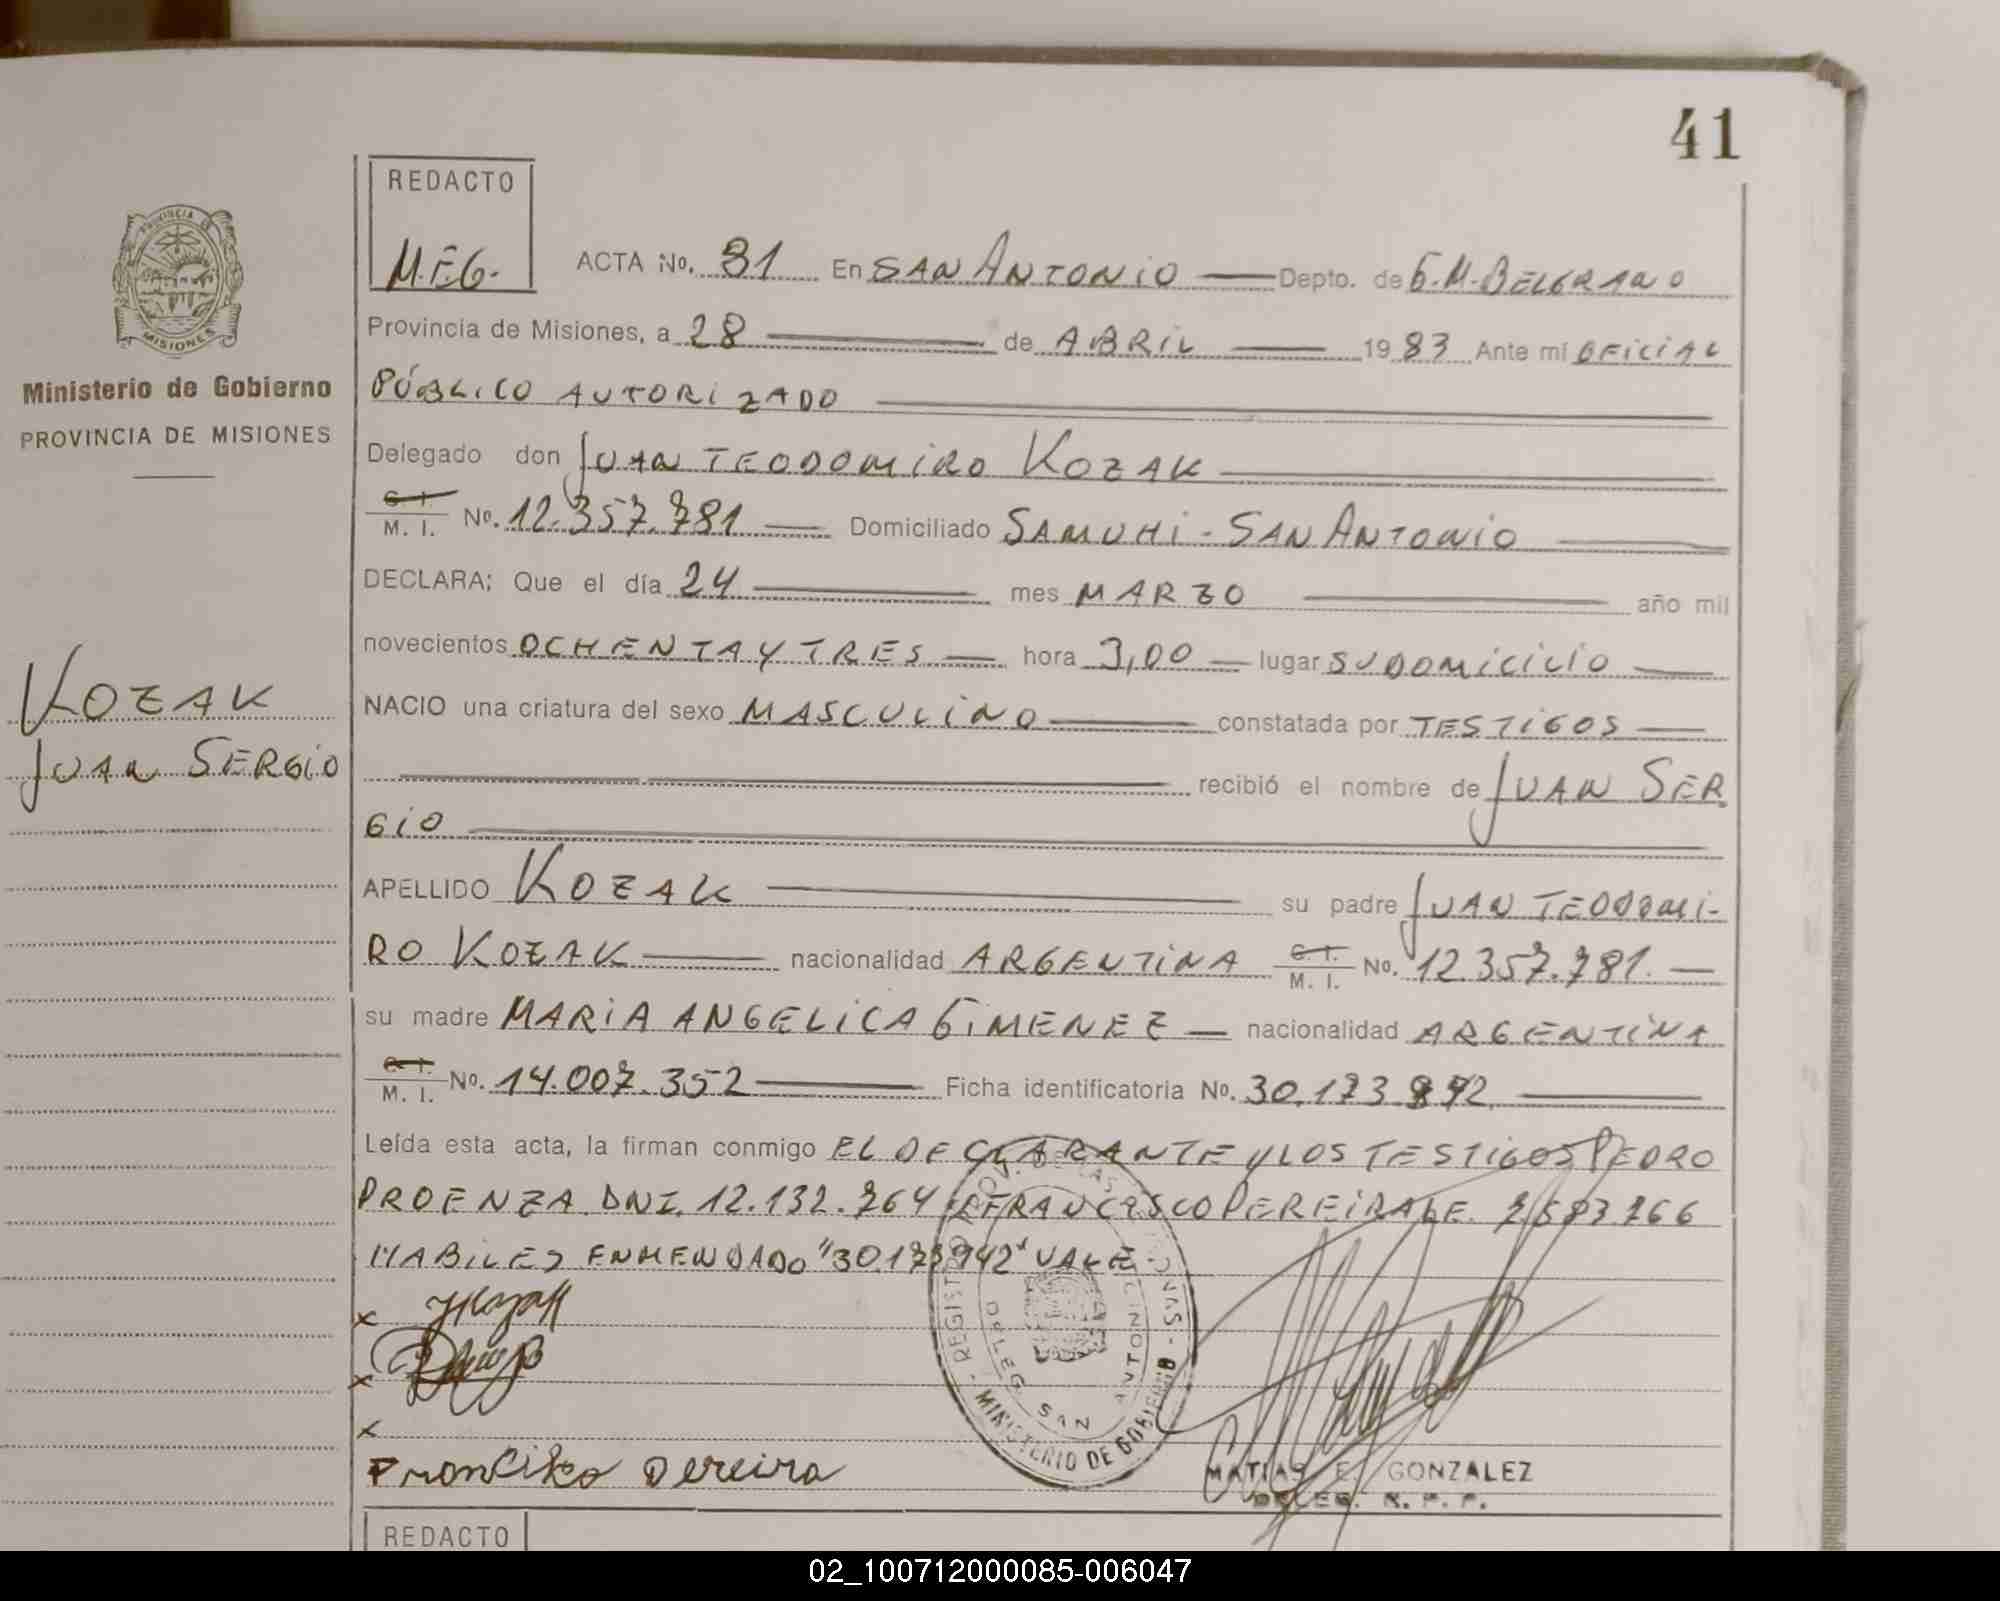 41
REDACTO
M.E.G.
ACTA No. 81 En SAN ANTONIO Depto. de G.M. BELGRANO
Provincia de Misiones, a 28 de ABRIL 1983 Ante mí OFICIAL
PÚBLICO AUTORIZADO
Delegado don JUAN TEODOMIRO KOZAK
C. I.
M. I. No. 12.357.781 Domiciliado SAMUHI - SAN ANTONIO
DECLARA; Que el día 24 mes MARZO año mil
novecientos OCHENTA Y TRES hora 3,00 lugar SU DOMICILIO
NACIO una criatura del sexo MASCULINO constatada por TESTIGOS
recibió el nombre de JUAN SER
GIO
APELLIDO KOZAK su padre JUAN TEODOMI-
RO KOZAK nacionalidad ARGENTINA C. I. M. I. No. 12.357.781.
su madre MARIA ANGELICA GIMENEZ nacionalidad ARGENTINA
C. I.
M. I. No. 14.007.352 Ficha identificatoria No. 30.173.942
Leída esta acta, la firman conmigo EL DECLARANTE Y LOS TESTIGOS PEDRO
PROENZA DNI. 12.132.764 FRANCISCO PEREIRA LE.
HABILES ENMENDADO "30.173942" VALE
x
x
x
Francisko Pereira
PROVINCIA DE
MISIONES
Ministerio de Gobierno
PROVINCIA DE MISIONES
KOZAK
JUAN SERGIO
MINISTERIO DE GOBIERNO
DELEG. SAN ANTONIO
MATIAS E. GONZALEZ
DELEG. R. P. P.
REDACTO
02_100712000085-006047